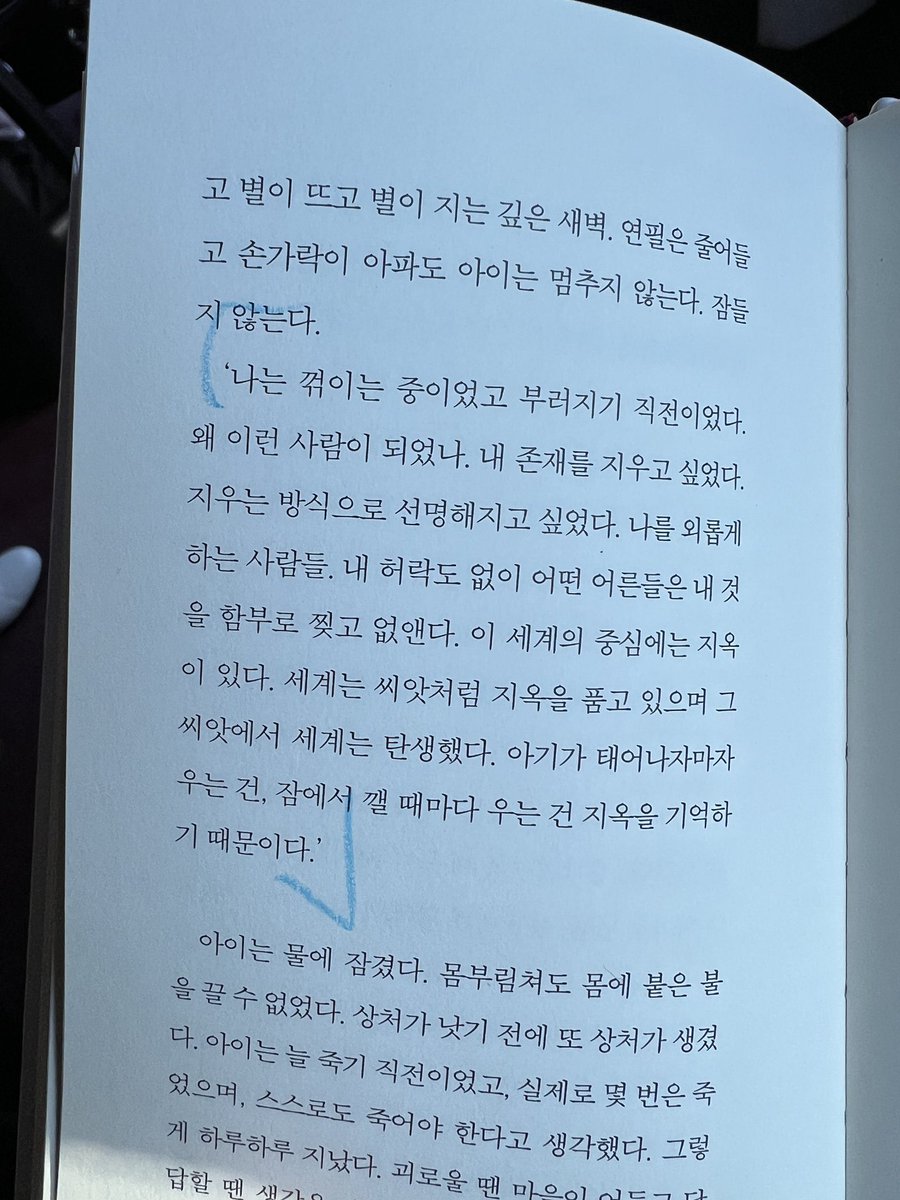 고 별이 뜨고 별이 지는 깊은 새벽. 연필은 줄어들
고 손가락이 아파도 아이는 멈추지 않는다. 잠들
지 않는다.
‘나는 꺾이는 중이었고 부러지기 직전이었다.
왜 이런 사람이 되었나. 내 존재를 지우고 싶었다.
지우는 방식으로 선명해지고 싶었다. 나를 외롭게
하는 사람들. 내 허락도 없이 어떤 어른들은 내 것
을 함부로 찢고 없앤다. 이 세계의 중심에는 지옥
이 있다. 세계는 씨앗처럼 지옥을 품고 있으며 그
씨앗에서 세계는 탄생했다. 아기가 태어나자마자
우는 건, 잠에서 깰 때마다 우는 건 지옥을 기억하
기 때문이다.’
아이는 물에 잠겼다. 몸부림쳐도 몸에 붙은 불
을 끌 수 없었다. 상처가 낫기 전에 또 상처가 생겼
다. 아이는 늘 죽기 직전이었고, 실제로 몇 번은 죽
었으며, 스스로도 죽어야 한다고 생각했다. 그렇
게 하루하루 지났다. 괴로울 땐 마음이 어둡고 답
답할 땐 생각은